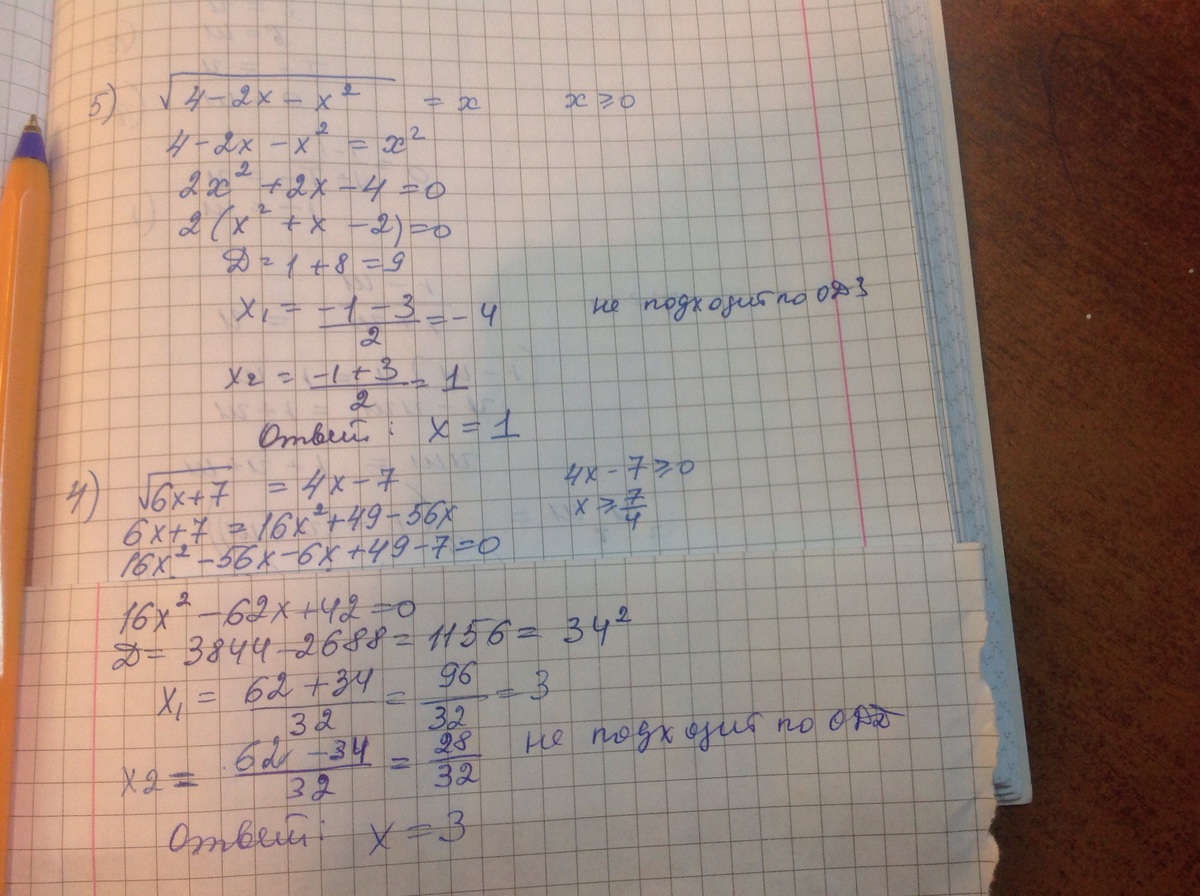 5) √(4-2x-x²) = x x ≥ 0
4-2x-x² = x²
2x²+2x-4=0
2(x²+x-2)=0
Д=1+8=9
x₁ = (-1-3)/2 = -4 не подходит по ОДЗ
x2 = (-1+3)/2 = 1
Ответ: x=1
4) √(6x+7) = 4x-7 4x-7≥0
6x+7 = 16x²+49-56x x ≥ 7/4
16x²-56x-6x+49-7=0
16x²-62x+42=0
Д= 3844-2688=1156= 34²
x₁ = (62+34)/32 = 96/32 = 3
x2 = (62-34)/32 = 28/32 не подходит по
Ответ: x=3